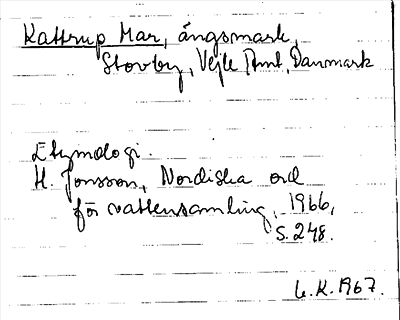 Kattrup Mar, ängsmark,
Stovby, Vejle Amt, Danmark
Etymologi.
H. Jonsson, Nordiska ord
för vattensamling, 1966,
S. 248.
L.K. 1967.